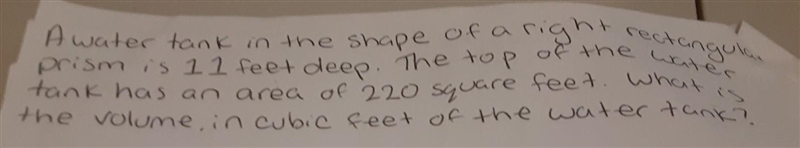 A water tank in the shape of a right rectangular
prism is 11 feet deep. The top of the water
tank has an area of 220 square feet. What is
the volume, in cubic feet of the water tank?